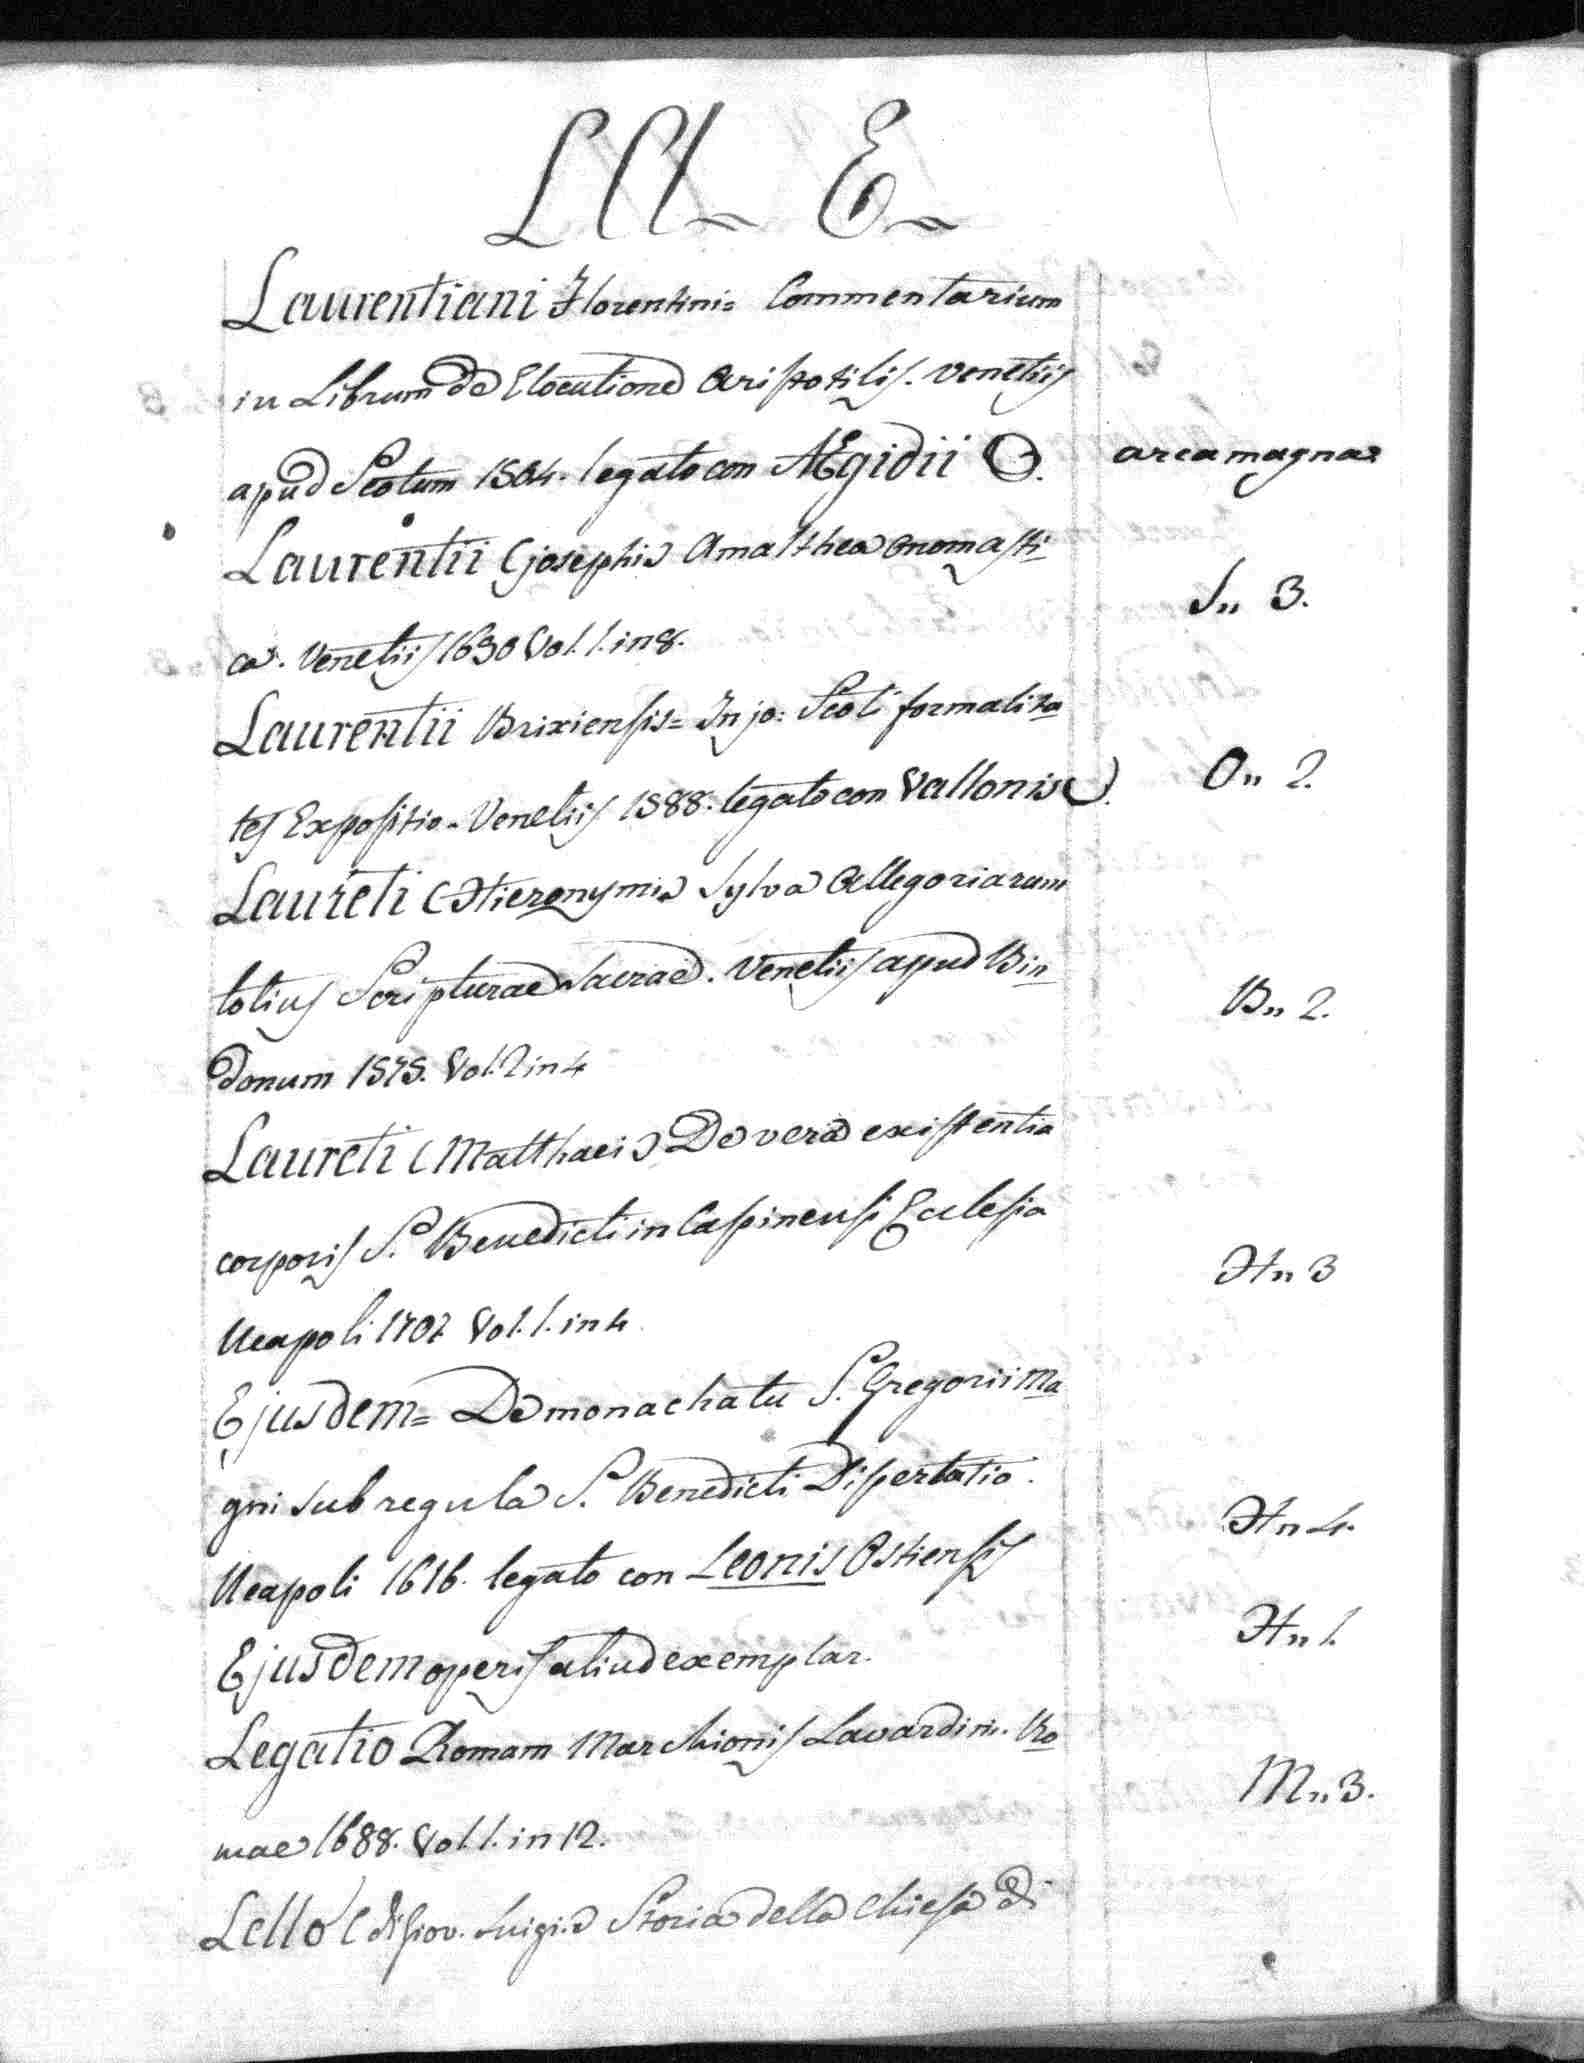 LA E
Laurentiani Florentini= Commentarium
in Librum de Elocutione Aristotilis. Venetiis
apud Scotum 1564. legato con AEgidii
arca magna
Laurentii (josephi) Amalthea onomasti-
S,, 3.
ca. Venetiis 1690 Vol. 1. in 8.
Laurentii Brixiensis= In jo: Scoti formalita
tes Expositio. Venetiis 1588. legato con Vallonis
O,, 2.
Laureti (Hieronymi) Sylva Allegoriarum
totius Scripturae sacrae. Venetiis apud Bin-
B,, 2.
donum 1575. Vol. 2 in 4
Laureti (Matthaei) De vera existentia
corporis S. Benedicti in Casinensi Ecclesia
H,, 3
Neapoli 1707 Vol. 1. in 4
Ejusdem= De monachatu S. Gregorii Ma
gni sub regula S. Benedicti Dissertatio.
H,, 4.
Neapoli 1616. legato con Leonis Ostiensis
Ejusdem operis aliud exemplar.
H,, 1.
Legatio Romam Marchionis Lavardini. Ro
M,, 3.
mae 1688. Vol. 1. in 12.
Lello (di Giov. Luigi) Storia della Chiesa di